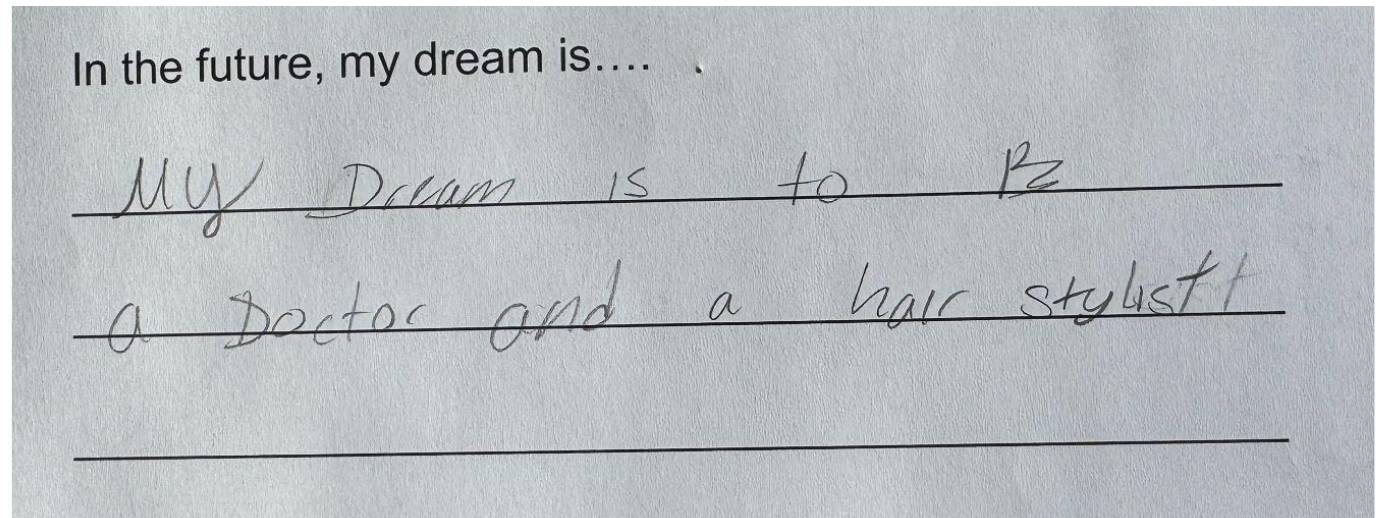 In the future, my dream is....
My Dream is to Be
a Doctor and a hair stylistt